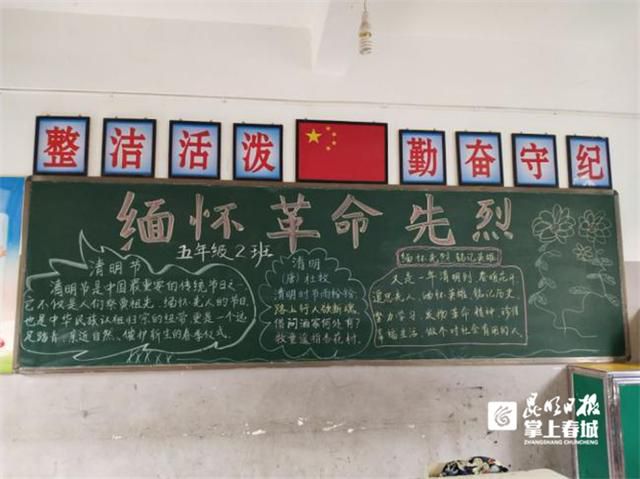 整洁活泼 勤奋守纪
缅怀革命先烈
五年级2班
清明节
清明节是中国最重要的传统节日之一
它不仅是人们祭奠祖先、缅怀先人的节日
也是中华民族认祖归宗的纽带更是一个远
足踏青、亲近自然、催护新生的春季仪式
清明
(唐)杜牧
清明时节雨纷纷
路上行人欲断魂
借问酒家何处有?
牧童遥指杏花村.
缅怀先烈 铭记英雄
又是一年清明到 春暖花开
追思先人、缅怀英雄、铭记历史
奋力学习、发扬革命精神,珍惜
幸福生活、做个对社会有用的人.
昆明日报
掌上春城
ZHANGSHANG CHUNCHENG